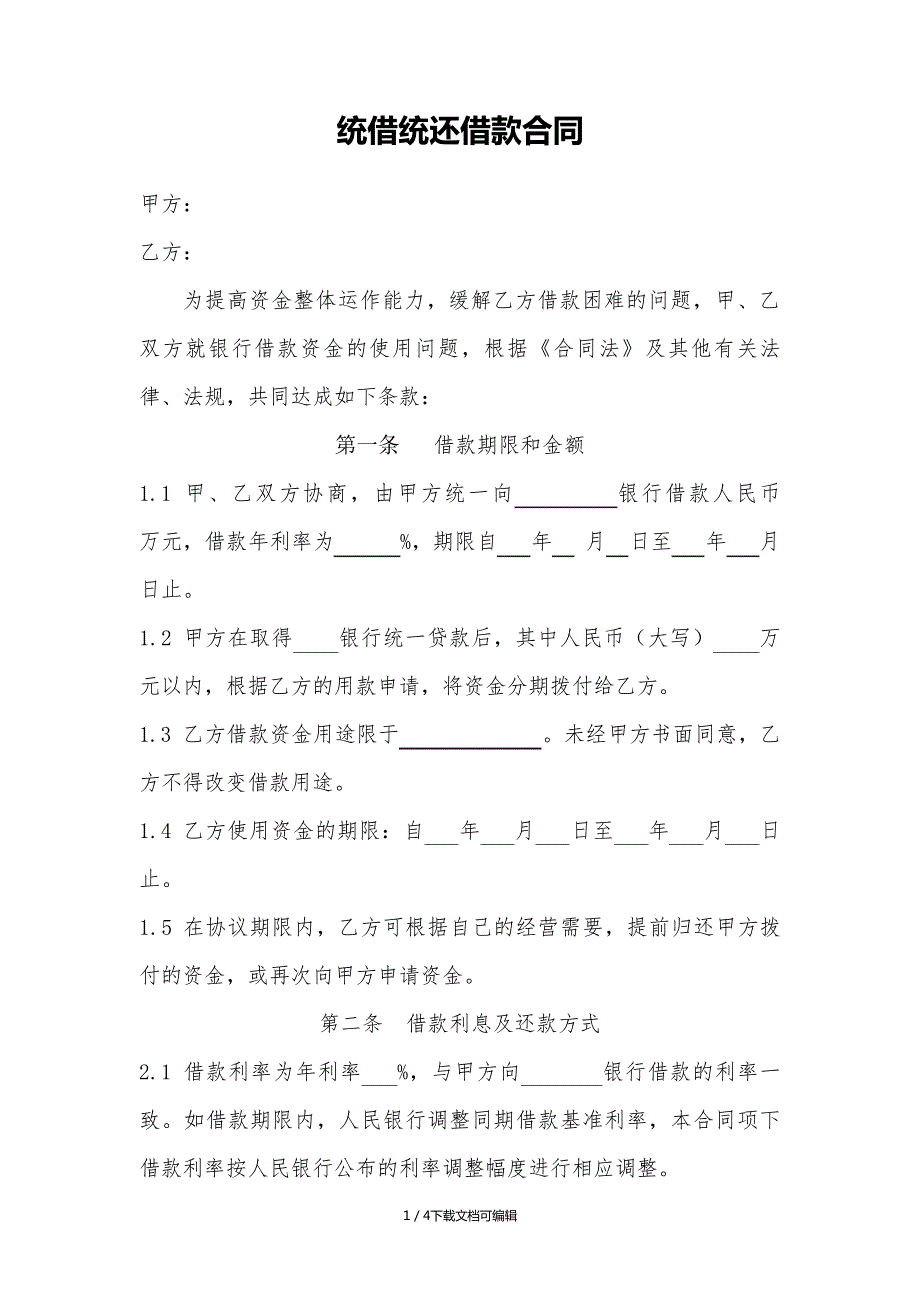 统借统还借款合同
甲方：
乙方：
为提高资金整体运作能力，缓解乙方借款困难的问题，甲、乙
双方就银行借款资金的使用问题，根据《合同法》及其他有关法
律、法规，共同达成如下条款：
第一条 借款期限和金额
1.1 甲、乙双方协商，由甲方统一向_________银行借款人民币
万元，借款年利率为______%，期限自___年__ 月__日至___年___月
日止。
1.2 甲方在取得____银行统一贷款后，其中人民币（大写）____万
元以内，根据乙方的用款申请，将资金分期拨付给乙方。
1.3 乙方借款资金用途限于_____________。未经甲方书面同意，乙
方不得改变借款用途。
1.4 乙方使用资金的期限：自___年___月___日至___年___月___日
止。
1.5 在协议期限内，乙方可根据自己的经营需要，提前归还甲方拨
付的资金，或再次向甲方申请资金。
第二条 借款利息及还款方式
2.1 借款利率为年利率___%，与甲方向_______银行借款的利率一
致。如借款期限内，人民银行调整同期借款基准利率，本合同项下
借款利率按人民银行公布的利率调整幅度进行相应调整。
1 / 4下载文档可编辑